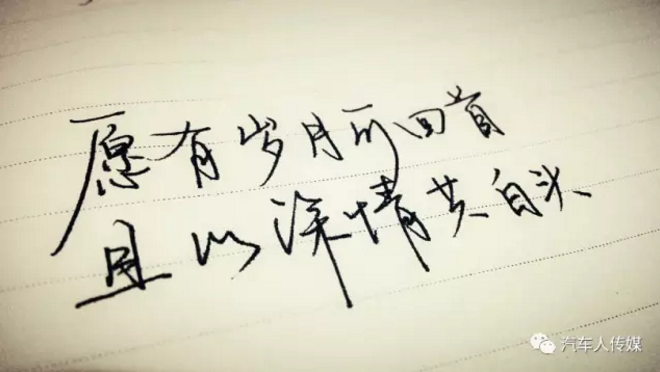 愿有岁月可回首
且以深情共白头
汽车人传媒